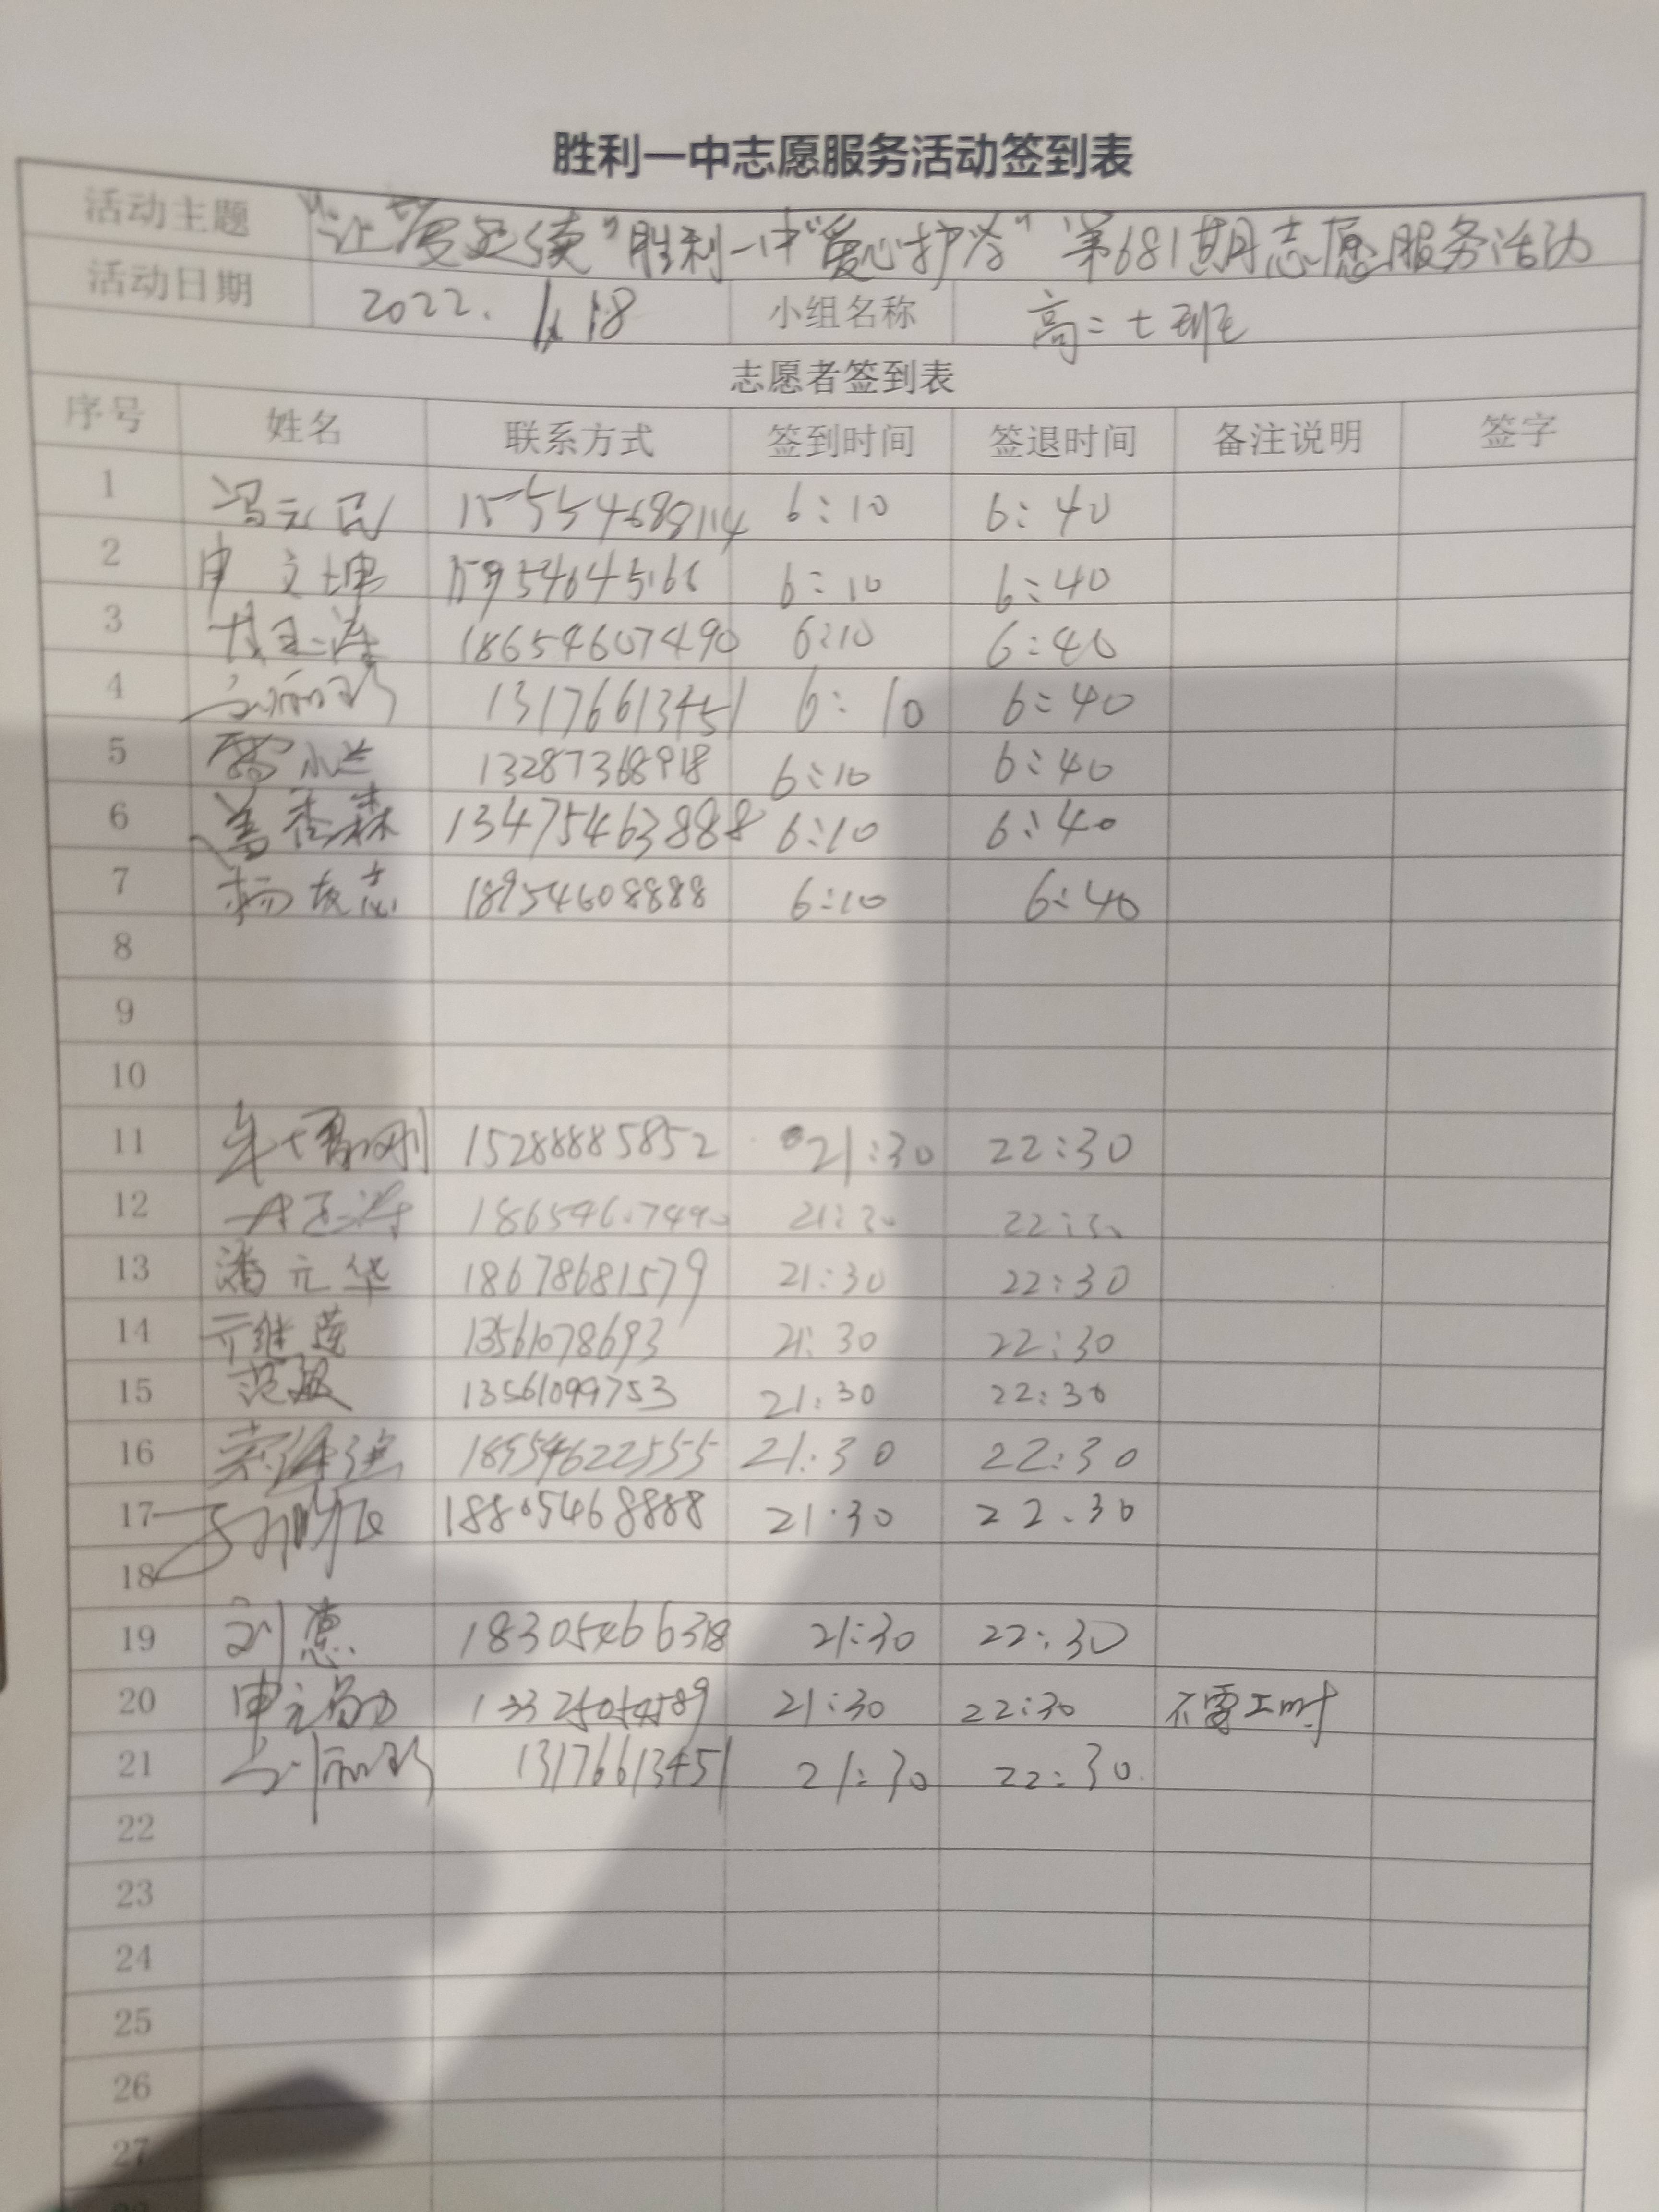 胜利一中志愿服务活动签到表
活动主题 "让爱延续"胜利一中"爱心护学"第681期志愿服务活动
活动日期 2022. 18 小组名称 高二七班
志愿者签到表
序号 姓名 联系方式 签到时间 签退时间 备注说明 签字
1 冯元民 6:10 6:40
2 申立坤 6:10 6:40
3 18654607490 6:10 6:40
4 13176613451 6:10 6:40
5 13287368918 6:10 6:40
6 盖秀森 13475463888 6:10 6:40
7 杨友志 18954608888 6:10 6:40
8
9
10
11 15288885852 21:30 22:30
12 18654607490 21:30 22:30
13 潘元华 18678681579 21:30 22:30
14 亓继莲 13561078693 21:30 22:30
15 范敏 13561099753 21:30 22:30
16 18954622555 21:30 22:30
17 18805468888 21:30 22.30
18
19 刘惠 18305466318 21:30 22:30
20 21:30 22:30 不需工时
21 13176613451 21:30 22:30
22
23
24
25
26
27